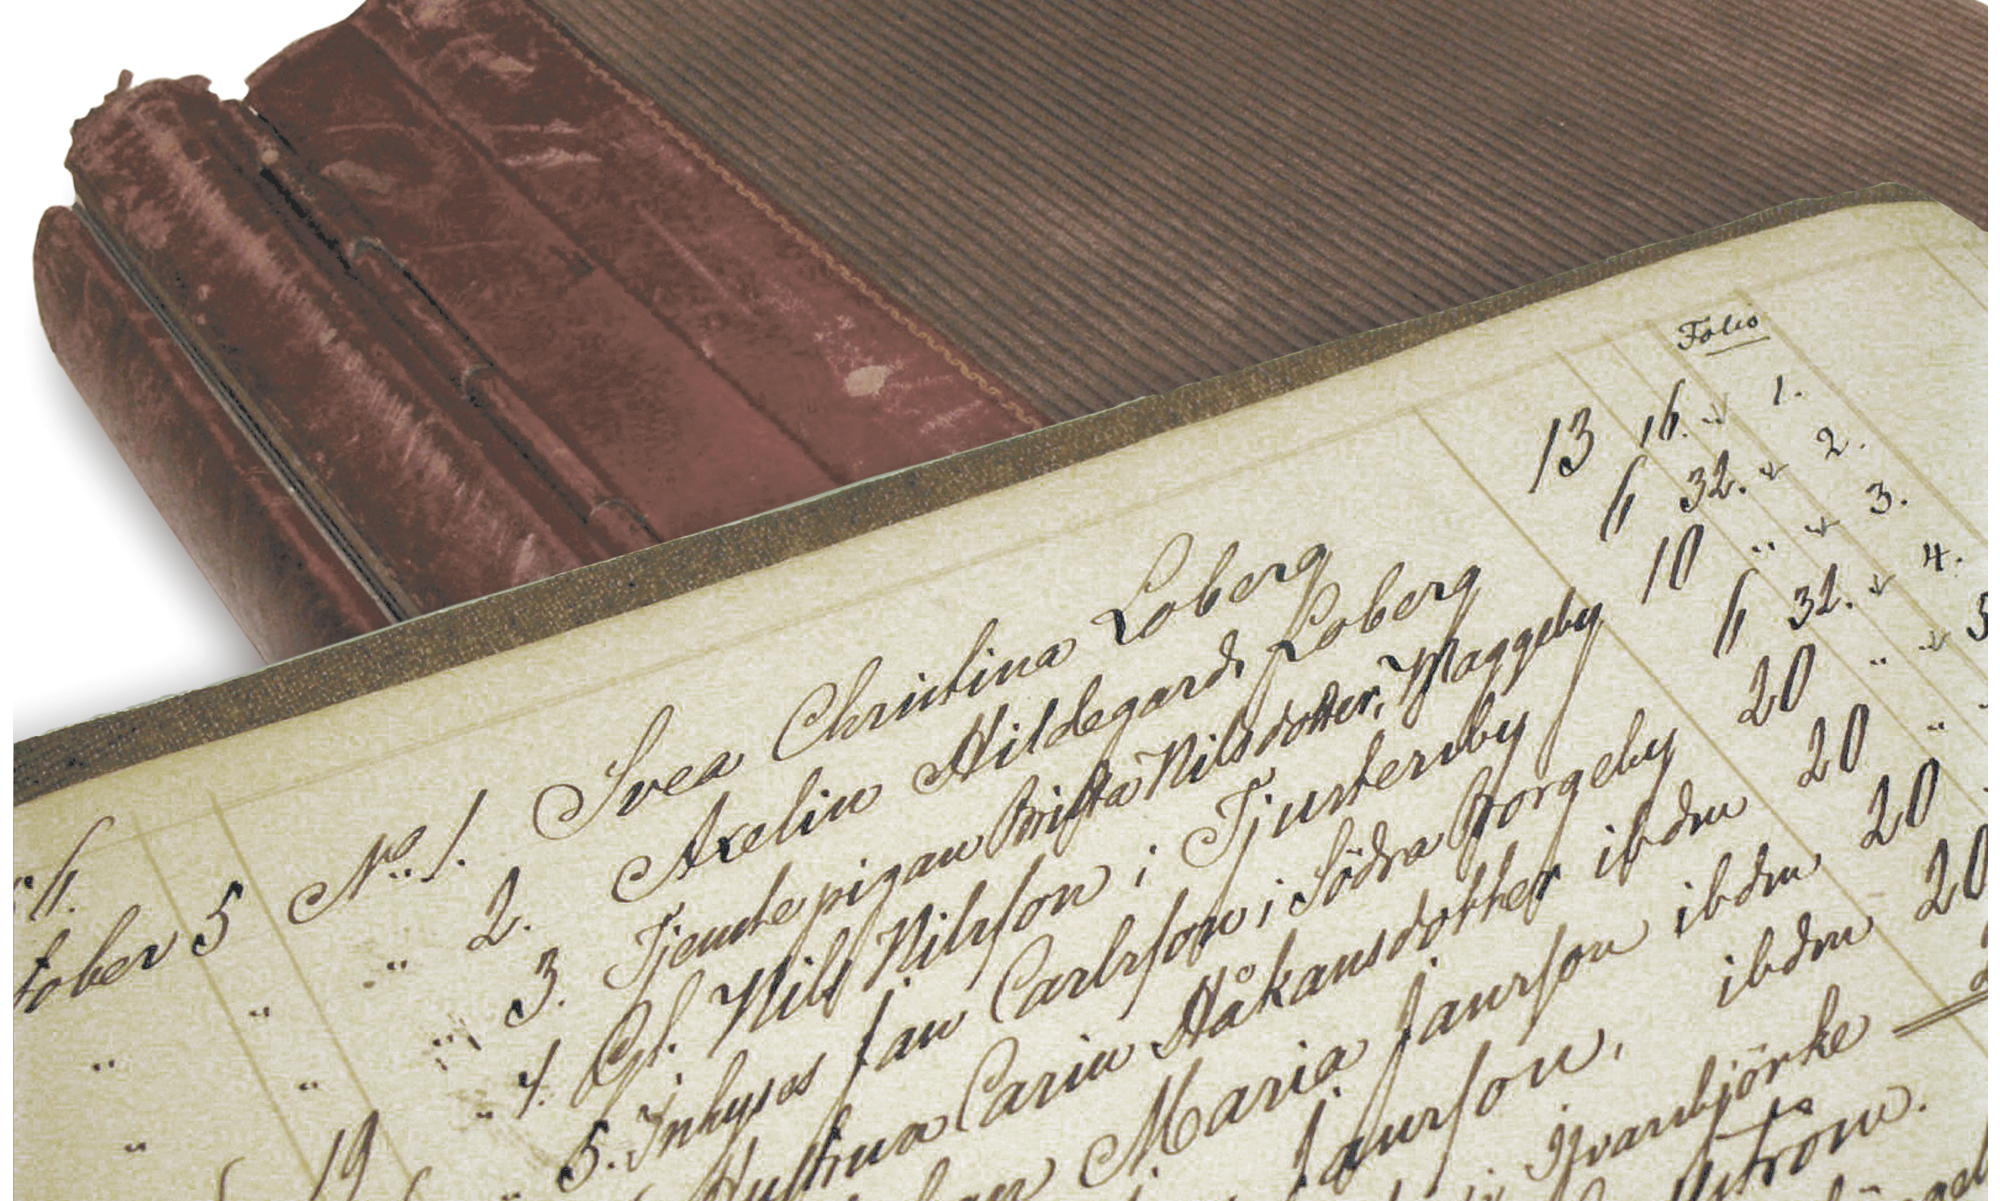 Folio
56.
tober 5 No. 1. Svea Christina Loberg 13 16. " 1.
" " 2. Axelin Hildegard Loberg 6 32. " 2.
" " 3. Tjenstepigan Britta Nilsdotter, Waggeby 10 " " 3.
" " 4. Gl. Nils Nilsson i Tjusterby 6 32. " 4.
19 " 5. Inhyses Jan Carlsson i Södra Borgeby 20 " " 5
Hustrun Carin Håkansdotter ibdm 20 "
Maria Jansson ibdm 20
Jansson, ibdm 20
i Qvarnbjörke
ström.